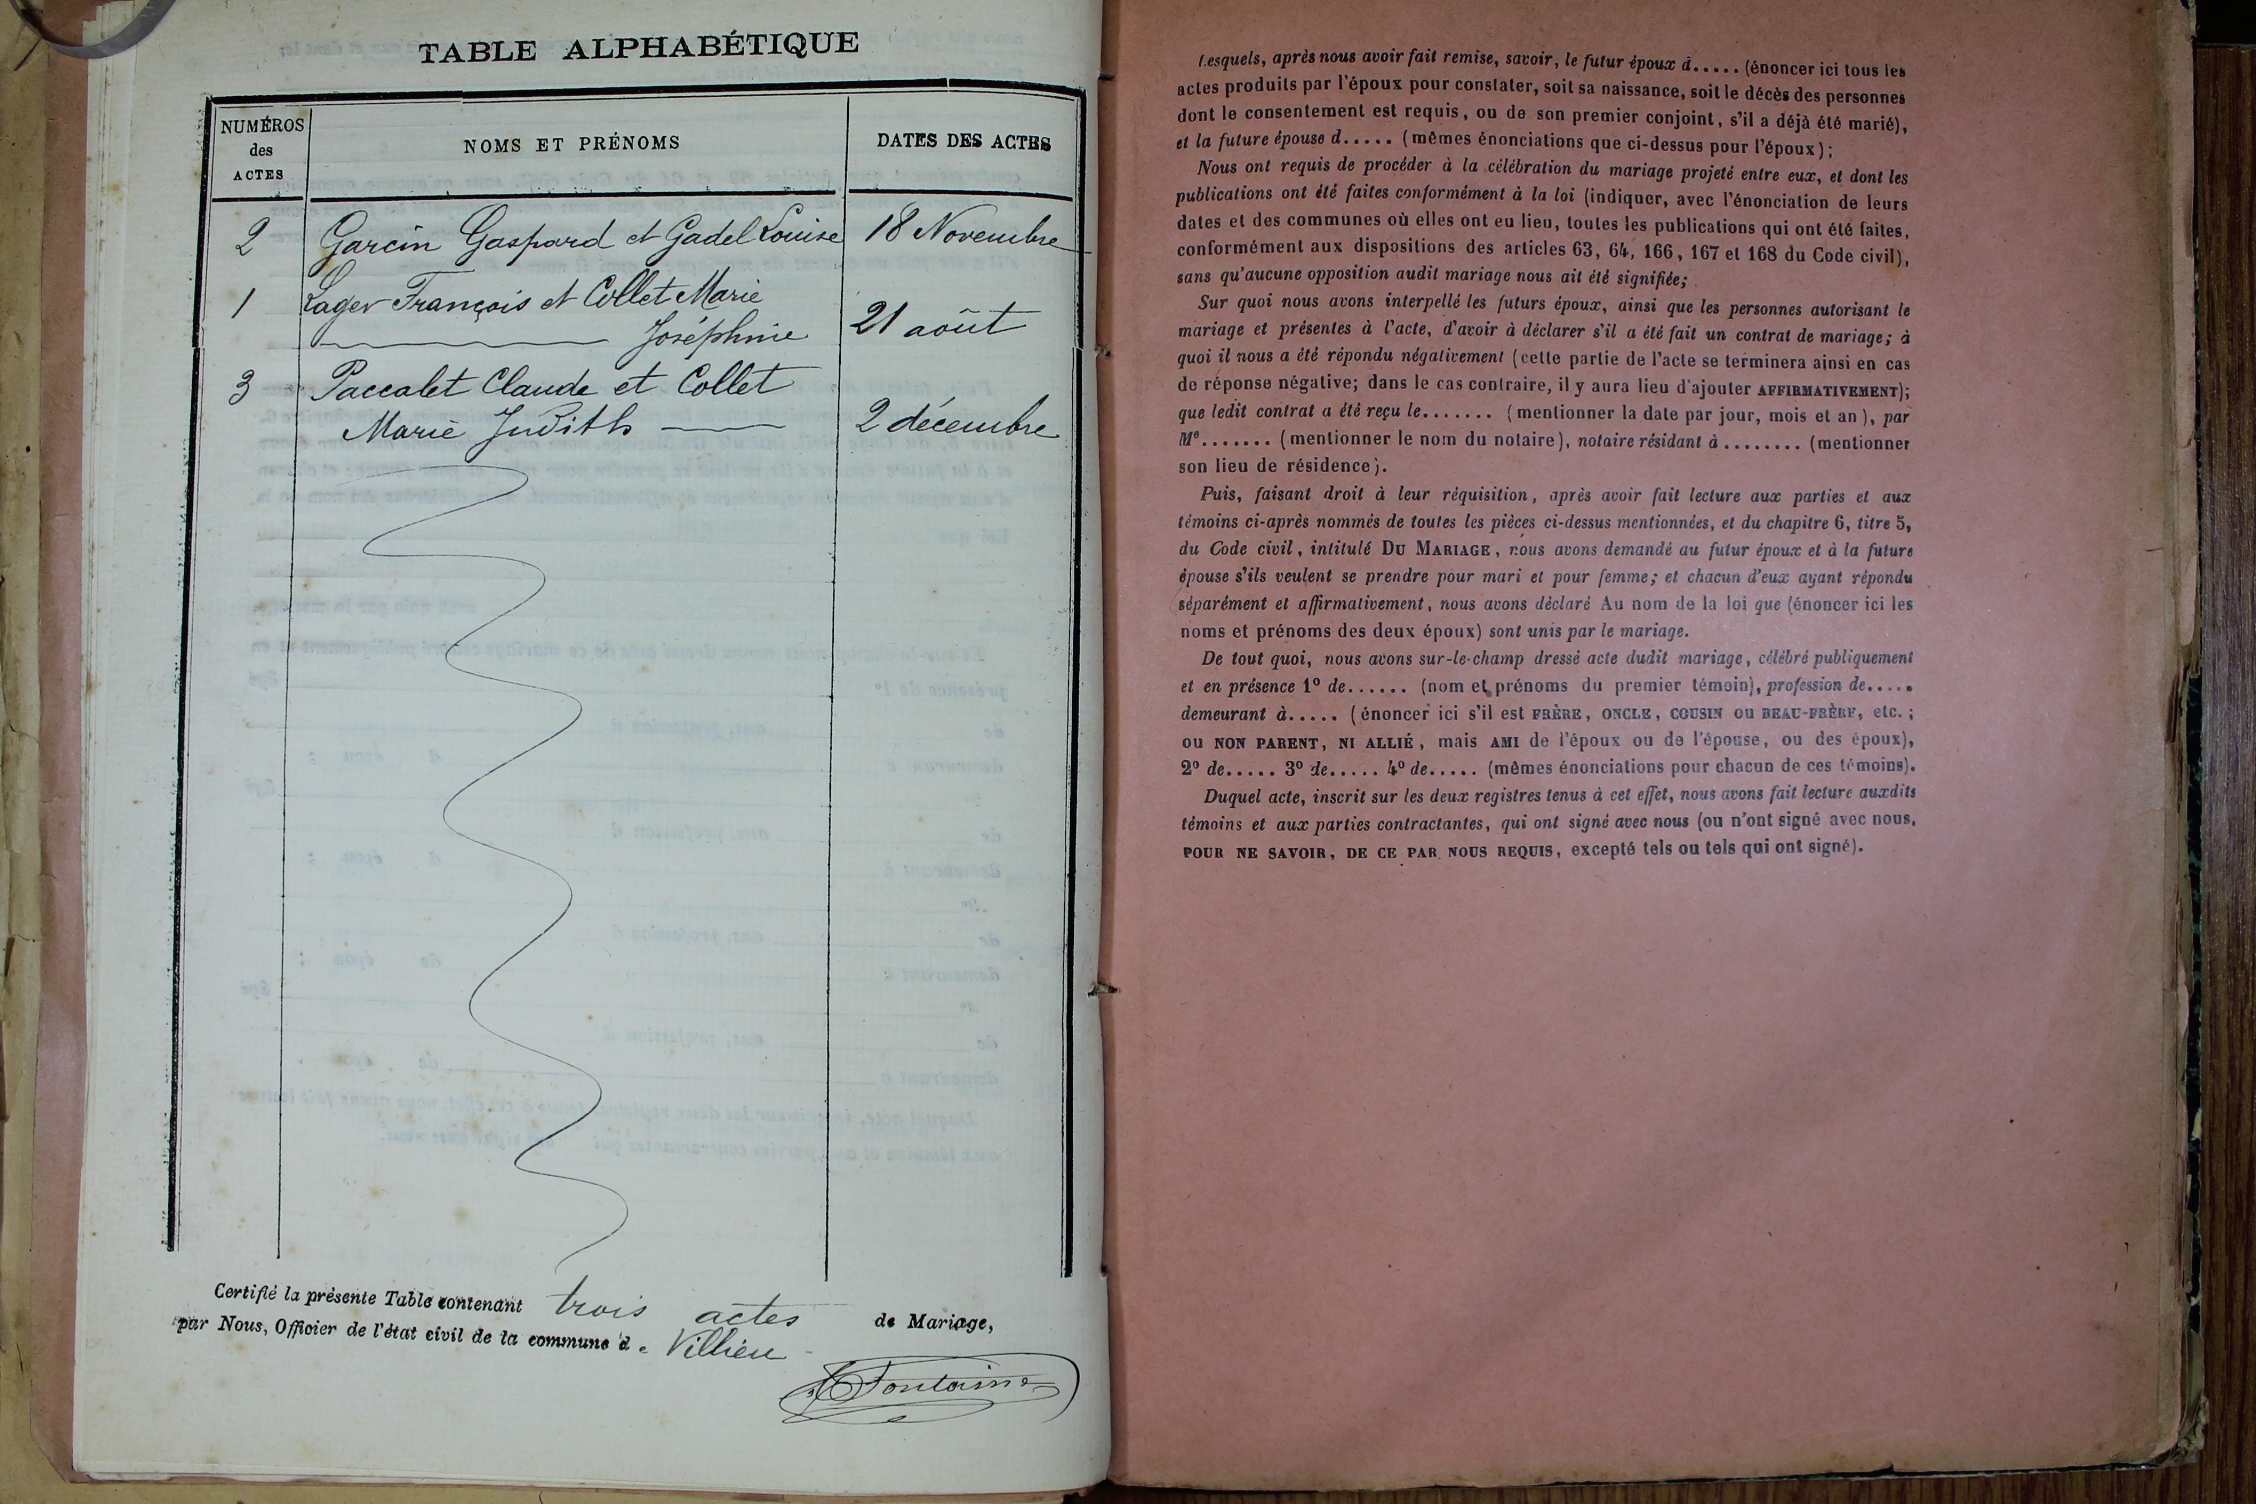 TABLE ALPHABÉTIQUE
NUMÉROS
des
ACTES
NOMS ET PRÉNOMS
DATES DES ACTES
2 Garcin Gaspard et Gadel Louise 18 Novembre
1 Lager François et Collet Marie
Joséphine 21 août
3 Paccalet Claude et Collet
Marie Judith 2 décembre
Certifié la présente Table contenant trois actes de Mariage,
par Nous, Officier de l'état civil de la commune de Villieu
Fontaine
Lesquels, après nous avoir fait remise, savoir, le futur époux d..... (énoncer ici tous les
actes produits par l'époux pour constater, soit sa naissance, soit le décès des personnes
dont le consentement est requis, ou de son premier conjoint, s'il a déjà été marié),
et la future épouse d..... (mêmes énonciations que ci-dessus pour l'époux);
Nous ont requis de procéder à la célébration du mariage projeté entre eux, et dont les
publications ont été faites conformément à la loi (indiquer, avec l'énonciation de leurs
dates et des communes où elles ont eu lieu, toutes les publications qui ont été faites,
conformément aux dispositions des articles 63, 64, 166, 167 et 168 du Code civil),
sans qu'aucune opposition audit mariage nous ait été signifiée;
Sur quoi nous avons interpellé les futurs époux, ainsi que les personnes autorisant le
mariage et présentes à l'acte, d'avoir à déclarer s'il a été fait un contrat de mariage; à
quoi il nous a été répondu négativement (cette partie de l'acte se terminera ainsi en cas
de réponse négative; dans le cas contraire, il y aura lieu d'ajouter AFFIRMATIVEMENT);
que ledit contrat a été reçu le....... (mentionner la date par jour, mois et an), par
Me....... (mentionner le nom du notaire), notaire résidant à ........ (mentionner
son lieu de résidence).
Puis, faisant droit à leur réquisition, après avoir fait lecture aux parties et aux
témoins ci-après nommés de toutes les pièces ci-dessus mentionnées, et du chapitre 6, titre 5,
du Code civil, intitulé DU MARIAGE, nous avons demandé au futur époux et à la future
épouse s'ils veulent se prendre pour mari et pour femme; et chacun d'eux ayant répondu
séparément et affirmativement, nous avons déclaré Au nom de la loi que (énoncer ici les
noms et prénoms des deux époux) sont unis par le mariage.
De tout quoi, nous avons sur-le-champ dressé acte dudit mariage, célébré publiquement
et en présence 1º de...... (nom et prénoms du premier témoin), profession de.....
demeurant à..... (énoncer ici s'il est FRÈRE, ONCLE, COUSIN ou BEAU-FRÈRE, etc.;
ou NON PARENT, NI ALLIÉ, mais AMI de l'époux ou de l'épouse, ou des époux),
2º de..... 3º de..... 4º de..... (mêmes énonciations pour chacun de ces témoins).
Duquel acte, inscrit sur les deux registres tenus à cet effet, nous avons fait lecture auxdits
témoins et aux parties contractantes, qui ont signé avec nous (ou n'ont signé avec nous,
POUR NE SAVOIR, DE CE PAR NOUS REQUIS, excepté tels ou tels qui ont signé).